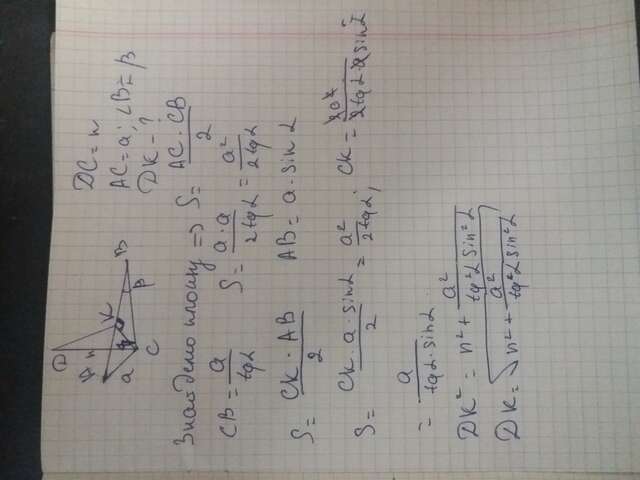 DC = n
AC = a; ∠B = β
DK - ?
D
A
n
K
B
β
a
C
Знайдемо площу => S = AC · CB / 2
CB = a / tgα S = a · a / 2tgα = a² / 2tgα
S = CK · AB / 2 AB = a · sinα
S = CK · a · sinα / 2 = a² / 2tgα; CK = 2a² / 2tgα · a sinα =
= a / tgα · sinα
DK² = n² + a² / tg²α sin²α
DK = √(n² + a² / tg²α sin²α)